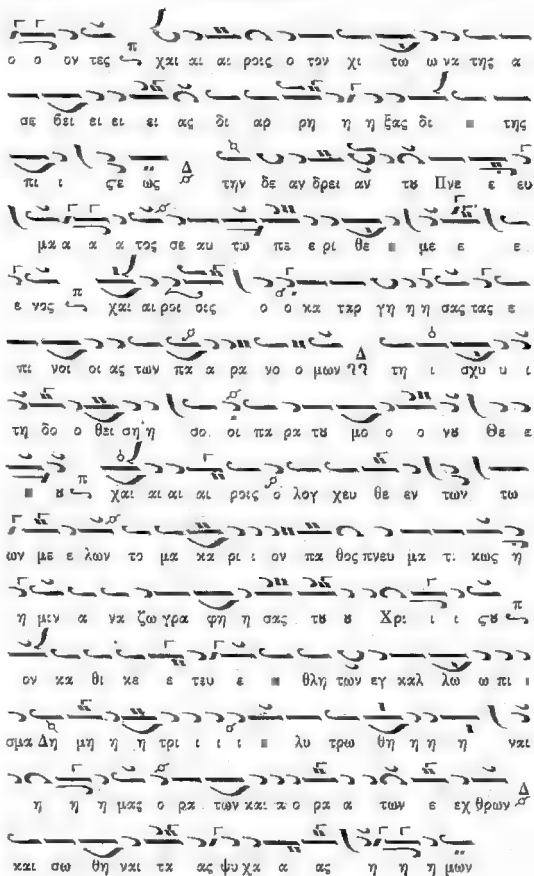 ο ο ον τες π χαι αι αι ροις ο τον χι τω ω να της α
σε βει ει ει ει ας δι αρ ρη η η ξας δι ȣ της
πι ι ϛε ως Δ την δε αν δρει αν τȣ Πνε ε ευ
μα α α α τος σε αυ τω πε ε ρι θε ȣ με ε ε
ε νος π χαι αι ροι οις ο ο κα ταρ γη η η σας τας ε
πι νοι οι ας των πα α ρα νο ο μων Δ τη ι σχυ υ ι
τη δο ο θει ση η σοι οι πα ρα τȣ μο ο ο νȣ Θε ε
ȣ ȣ π χαι αι αι αι ροις ο λογ χευ θε εν των τω
ων με ε λων το μα κα ρι ι ον πα θος πνευ μα τι κως η
η μιν α να ζω γρα φη η σας τȣ ȣ Χρι ι ι ϛȣ π
ον κα θι κε ε τευ ε ȣ θλη των εγ καλ λω ω πι ι
σμα Δη μη η η τρι ι ι ι ȣ λυ τρω θη η η η ναι
η η η μας ο ρα των και α ο ρα α των ε εχ θρων Δ
και σω θη ναι τα ας ψυ χα α ας η η η μων